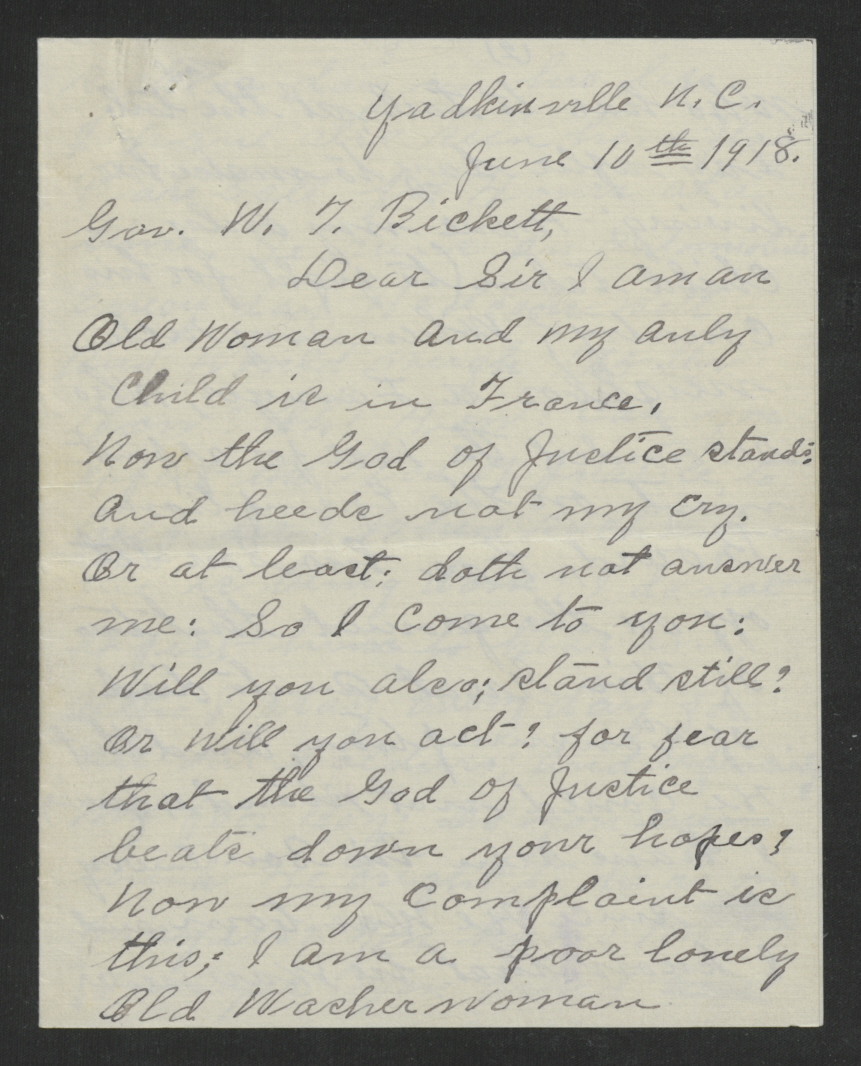 Yadkinville N.C.
June 10th 1918.
Gov. W. T. Bickett,
Dear Sir I am an
Old Woman and my only
Child is in France.
Now the God of Justice stands;
and heeds not my cry.
Or at least; doth not answer
me: So I Come to you:
Will you also; stand still?
Or will you act? for fear
that the God of Justice
beats down your hopes?
Now my Complaint is
this; I am a poor lonely
Old Washerwoman